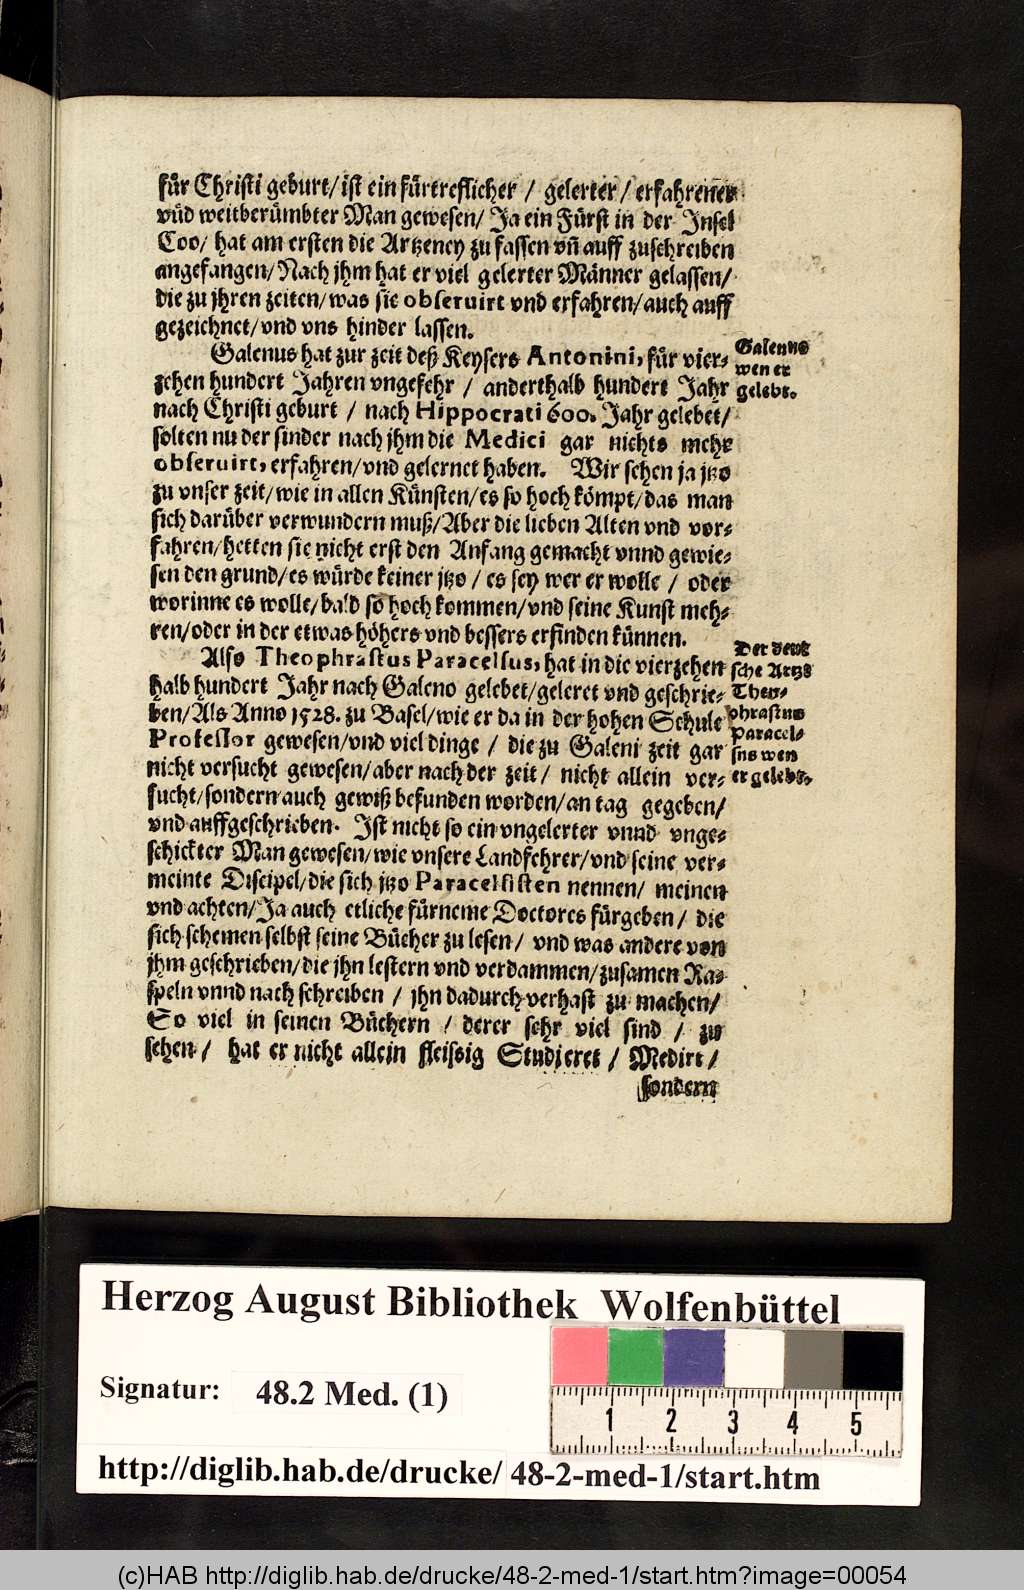 für Christi geburt/ist ein fürtreflicher / gelerter / erfahrener
vnd weitberümbter Man gewesen/ Ja ein Fürst in der Insel
Coo/ hat am ersten die Artzeney zu fassen vñ auff zuschreiben
angefangen/Nach jhm hat er viel gelerter Männer gelassen/
die zu jhren zeiten/was sie obseruirt vnd erfahren/auch auff
gezeichnet/vnd vns hinder lassen.
Galenus hat zur zeit deß Keysers Antonini, für vier-
zehen hundert Jahren vngefehr / anderthalb hundert Jahr
nach Christi geburt / nach Hippocrati 600. Jahr gelebet/
solten nu der sinder nach jhm die Medici gar nichts mehr
obseruirt, erfahren/vnd gelernet haben. Wir sehen ja jtzo
zu vnser zeit/wie in allen Künsten/es so hoch kömpt/das man
sich darüber verwundern muß/Aber die lieben Alten vnd vor-
fahren/hetten sie nicht erst den Anfang gemacht vnnd gewie-
sen den grund/es würde keiner jtzo / es sey wer er wolle / oder
worinne es wolle/bald so hoch kommen/vnd seine Kunst meh-
ren/oder in der etwas höhers vnd bessers erfinden künnen.
Also Theophrastus Paracelsus, hat in die vierzehen
halb hundert Jahr nach Galeno gelebet/geleret vnd geschrie-
ben/Als Anno 1528. zu Basel/wie er da in der hohen Schule
Professor gewesen/vnd viel dinge / die zu Galeni zeit gar
nicht versucht gewesen/aber nach der zeit/ nicht allein ver-
sucht/sondern auch gewiß befunden worden/an tag gegeben/
vnd auffgeschrieben. Ist nicht so ein vngelerter vnnd vnge-
schickter Man gewesen/wie vnsere Landfehrer/vnd seine ver-
meinte Discipel/die sich jtzo Paracelsisten nennen/ meinen
vnd achten/Ja auch etliche fürneme Doctores fürgeben/ die
sich schemen selbst seine Bücher zu lesen/ vnd was andere von
jhm geschrieben/die jhn lestern vnd verdammen/zusamen Ra-
speln vnnd nach schreiben / jhn dadurch verhast zu machen/
So viel in seinen Büchern / derer sehr viel sind / zu
sehen/ hat er nicht allein fleissig Studieret / Medirt /
sondern
Galenus
wen er
gelebt.
Der deut
sche Artzt
Theo-
phrastus
Paracel-
sus wen
er gelebt.
Herzog August Bibliothek Wolfenbüttel
Signatur: 48.2 Med. (1)
1 2 3 4 5
http://diglib.hab.de/drucke/ 48-2-med-1/start.htm
(c)HAB http://diglib.hab.de/drucke/48-2-med-1/start.htm?image=00054